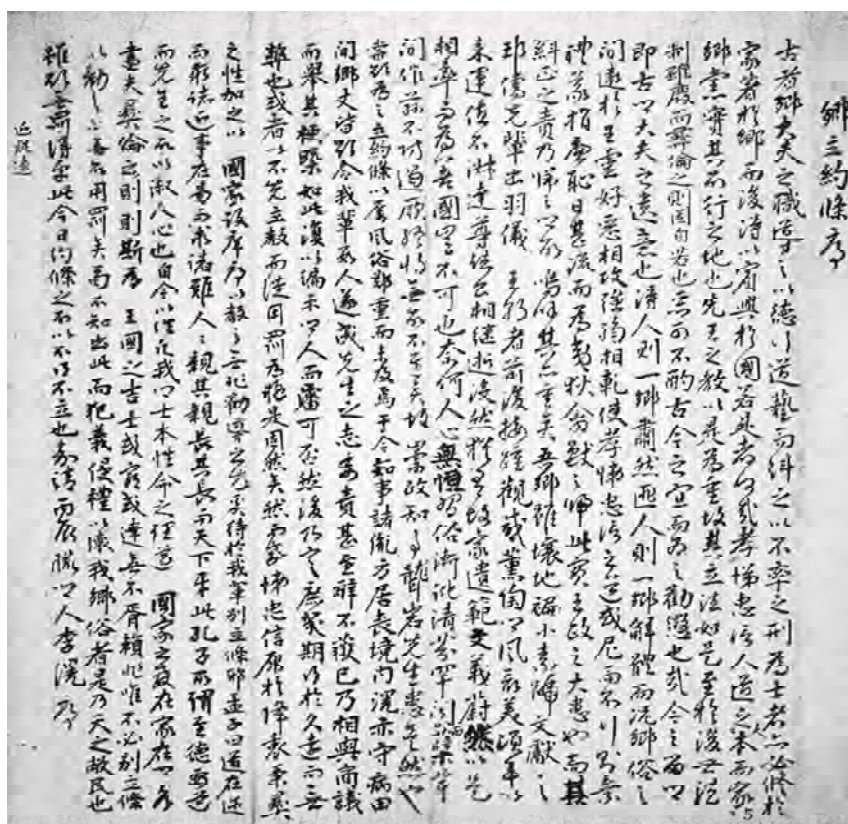 鄕立約條序
古者鄕大夫之職導之以德行道藝而糾之以不率之刑爲士者亦必修於
家著於鄕而後得以賓興於國若是者何哉孝悌忠信人道之大本而家與
鄕黨實其所行之地也先王之敎以是爲重故其立法如是至於後世法
制雖廢而彝倫之則固自若也惡可不酌古今之宜而爲之勸懲也哉今之留鄕
即古鄕大夫之遺意也得人則一鄕肅然匪人則一鄕解體而況鄕俗之
間遠於王靈好惡相攻强弱相軋使孝悌忠信之道或尼而不行則棄
禮義捐廉恥日甚流而爲夷狄禽獸之歸此實王政之大患也而其
糾正之責乃歸之鄕所嗚呼其亦重矣吾鄕雖壤地褊小素號文獻之
邦儒先輩出羽儀王朝者前後接踵觀感薰陶鄕風最美頃年以
來運値不淑達尊諸公相繼逝沒然猶有故家遺範文義蔚然以是
相率而爲善國豈不可也奈何人心無恒習俗漸訛淸芬罕聞而蘖芽
間作玆不防遏厥終將無所不至矣故崇政知事聾岩先生患是然也
嘗欲爲之立約條以厲風俗鄭重而未及焉于今知事諸胤方居喪境內滉亦守病田
間鄕丈皆欲令我輩數人遂成先生之志委責甚至辭不獲已乃相與商議
而擧其梗槩如此復以徧示鄕人而審可否然後乃定庶幾期行於久遠而無
弊也或者以不先立敎而徒用罰爲疑是固然矣然而孝悌忠信原於降衷秉彝
之性加之以國家設庠序以敎之無非勸導之方奚待於我輩別立條耶孟子曰道在邇
而求諸遠事在易而求諸難人人親其親長其長而天下平此孔子所謂至德要道
而先王之所以淑人心也自今以往凡我鄕士本性命之理遵國家之敎在家在鄕各
盡夫彝倫之則則斯爲王國之吉士或窮或達無不胥賴非惟不必別立條
以勸之亦無所用罰矣苟不知出此而犯義侵禮以壞我鄕俗者是乃天之敝民也
雖欲無罰得乎此今日約條之所以不得不立也嘉靖丙辰臘鄕人李滉序